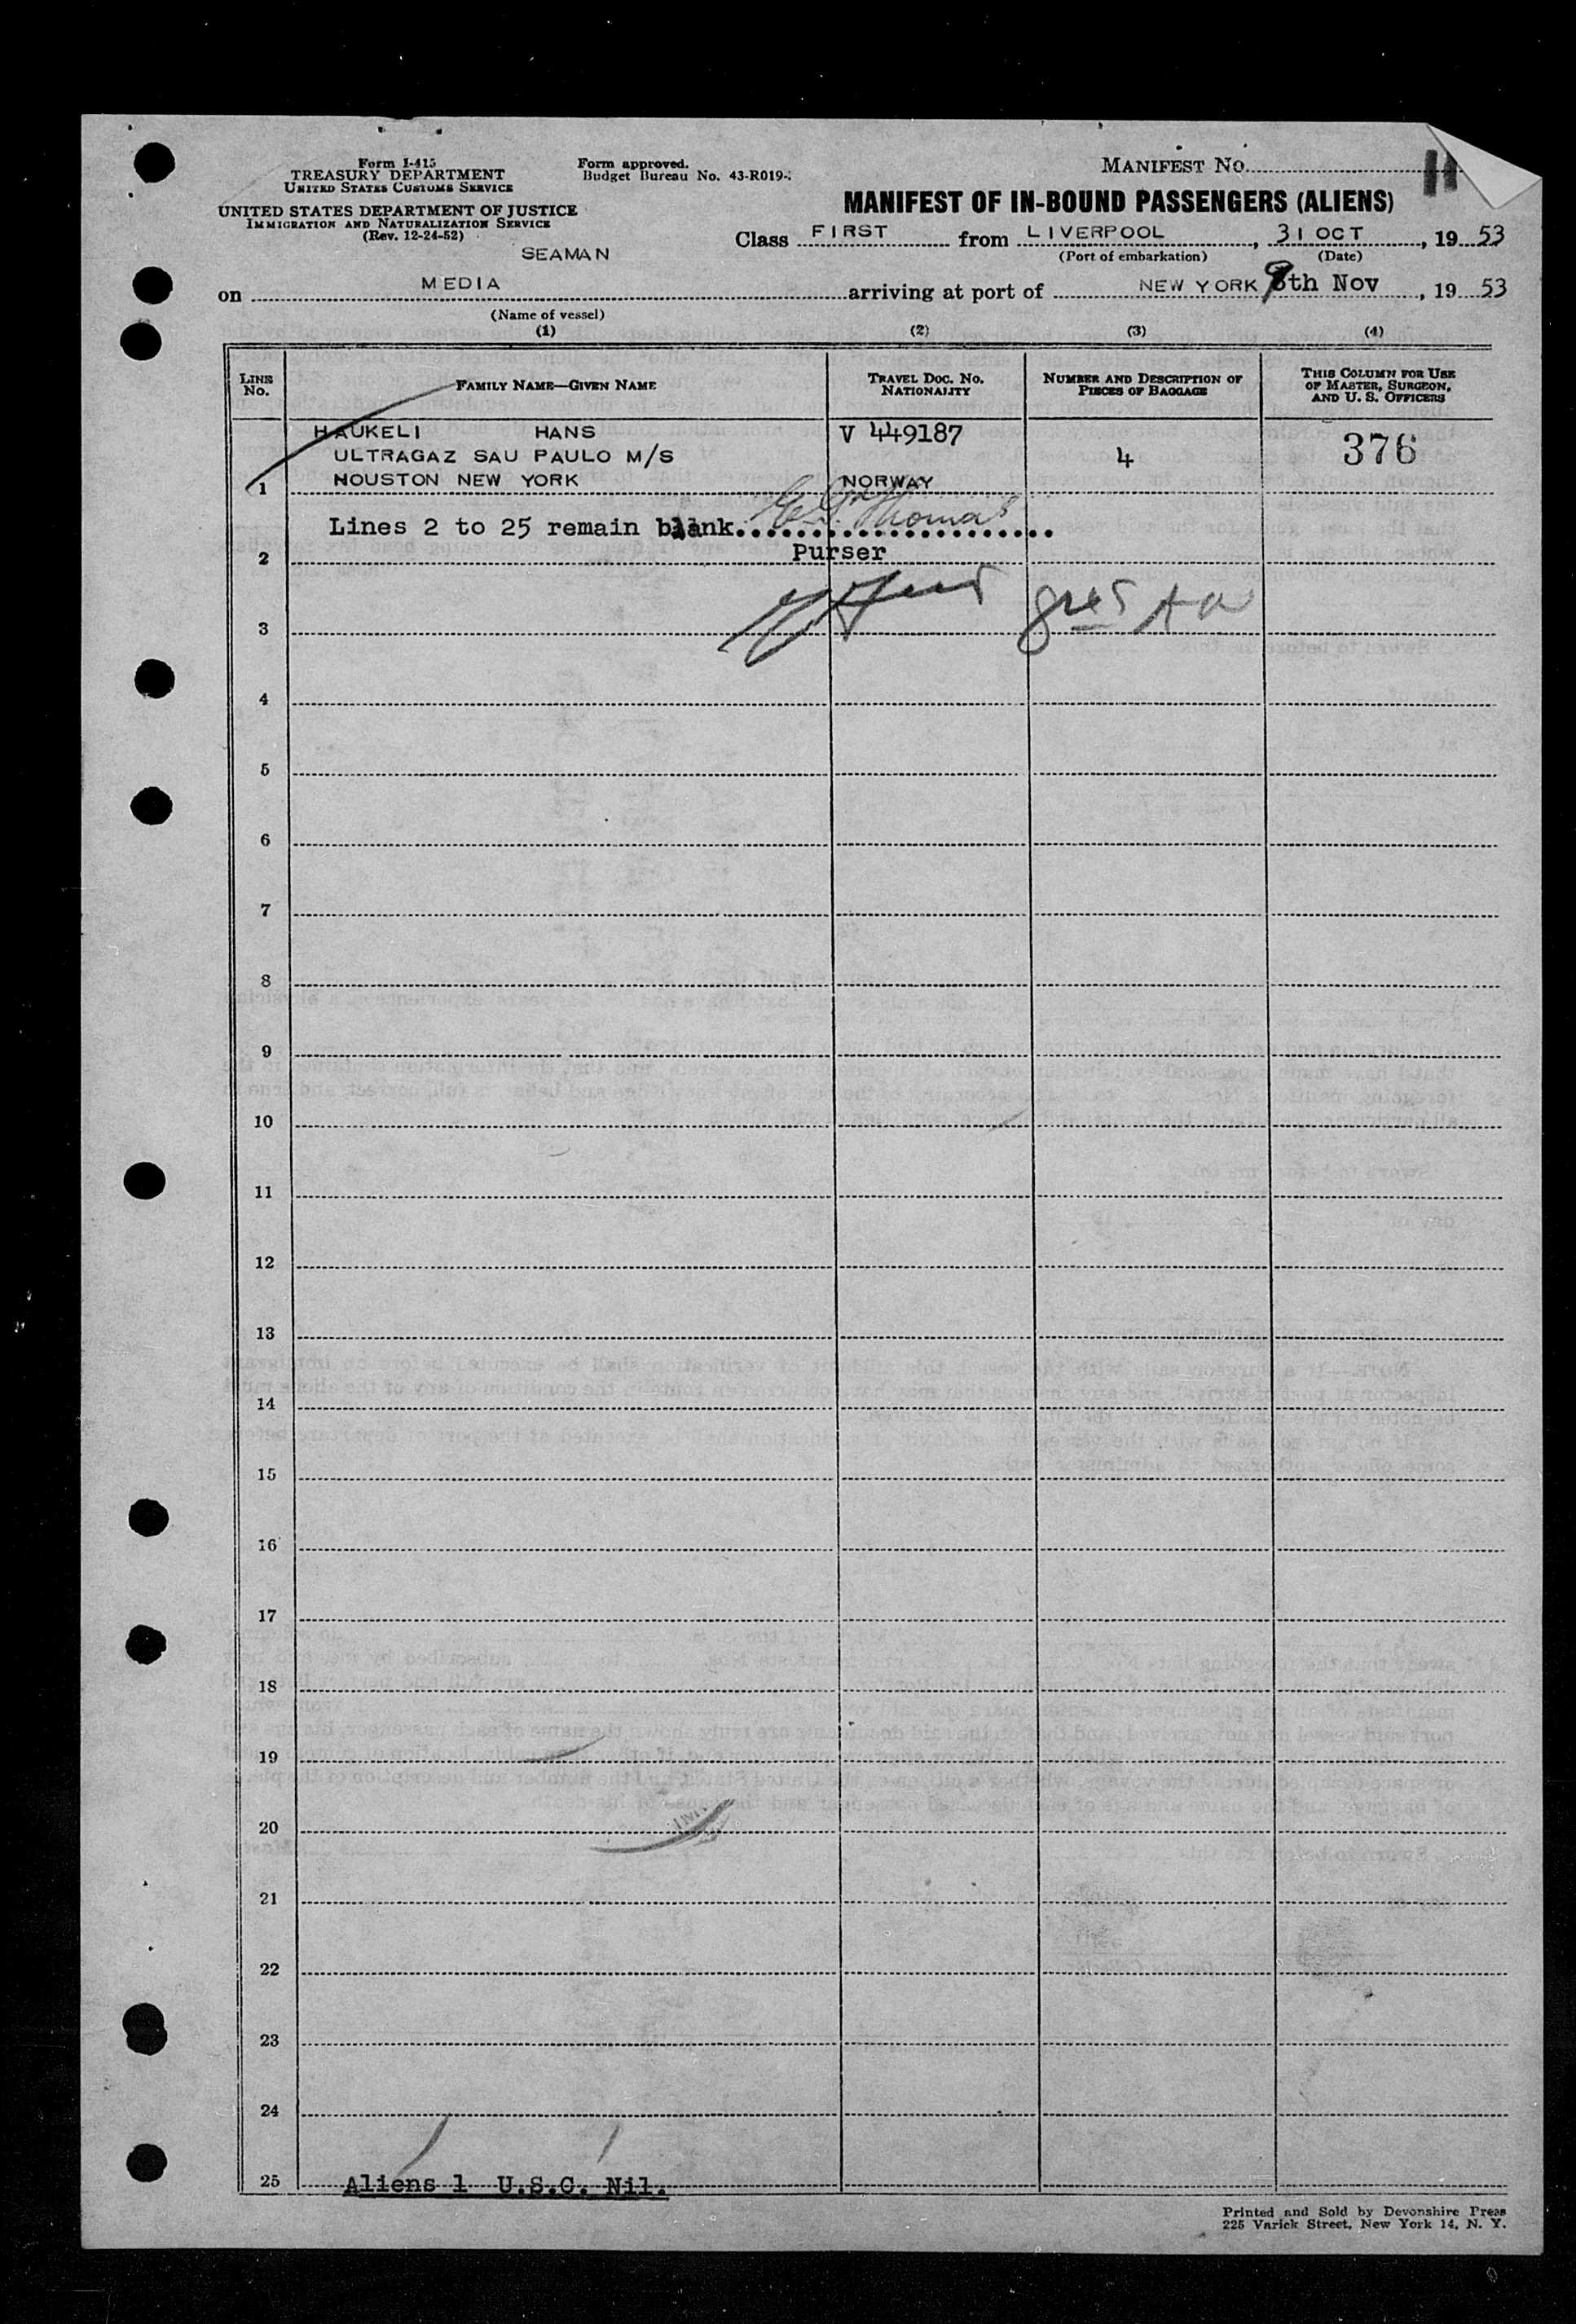 Form I-415
TREASURY DEPARTMENT
UNITED STATES CUSTOMS SERVICE
UNITED STATES DEPARTMENT OF JUSTICE
IMMIGRATION AND NATURALIZATION SERVICE
(Rev. 12-24-52)
Form approved.
Budget Bureau No. 43-R019-
MANIFEST No. 11
MANIFEST OF IN-BOUND PASSENGERS (ALIENS)
Class FIRST from LIVERPOOL, 31 OCT, 19 53
(Port of embarkation) (Date)
SEAMAN
on MEDIA arriving at port of NEW YORK 9th Nov, 19 53
(Name of vessel)
(1) (2) (3) (4)
LINE No. FAMILY NAME—GIVEN NAME TRAVEL DOC. NO. NATIONALITY NUMBER AND DESCRIPTION OF PIECES OF BAGGAGE THIS COLUMN FOR USE OF MASTER, SURGEON, AND U. S. OFFICERS
HAUKELI HANS V 449187
ULTRAGAZ SAU PAULO M/S 4 376
1 HOUSTON NEW YORK NORWAY
Lines 2 to 25 remain blank. Thomas
2 Purser
3
4
5
6
7
8
9
10
11
12
13
14
15
16
17
18
19
20
21
22
23
24
25 Aliens 1 U.S.C. Nil.
Printed and Sold by Devonshire Press
225 Varick Street, New York 14, N. Y.